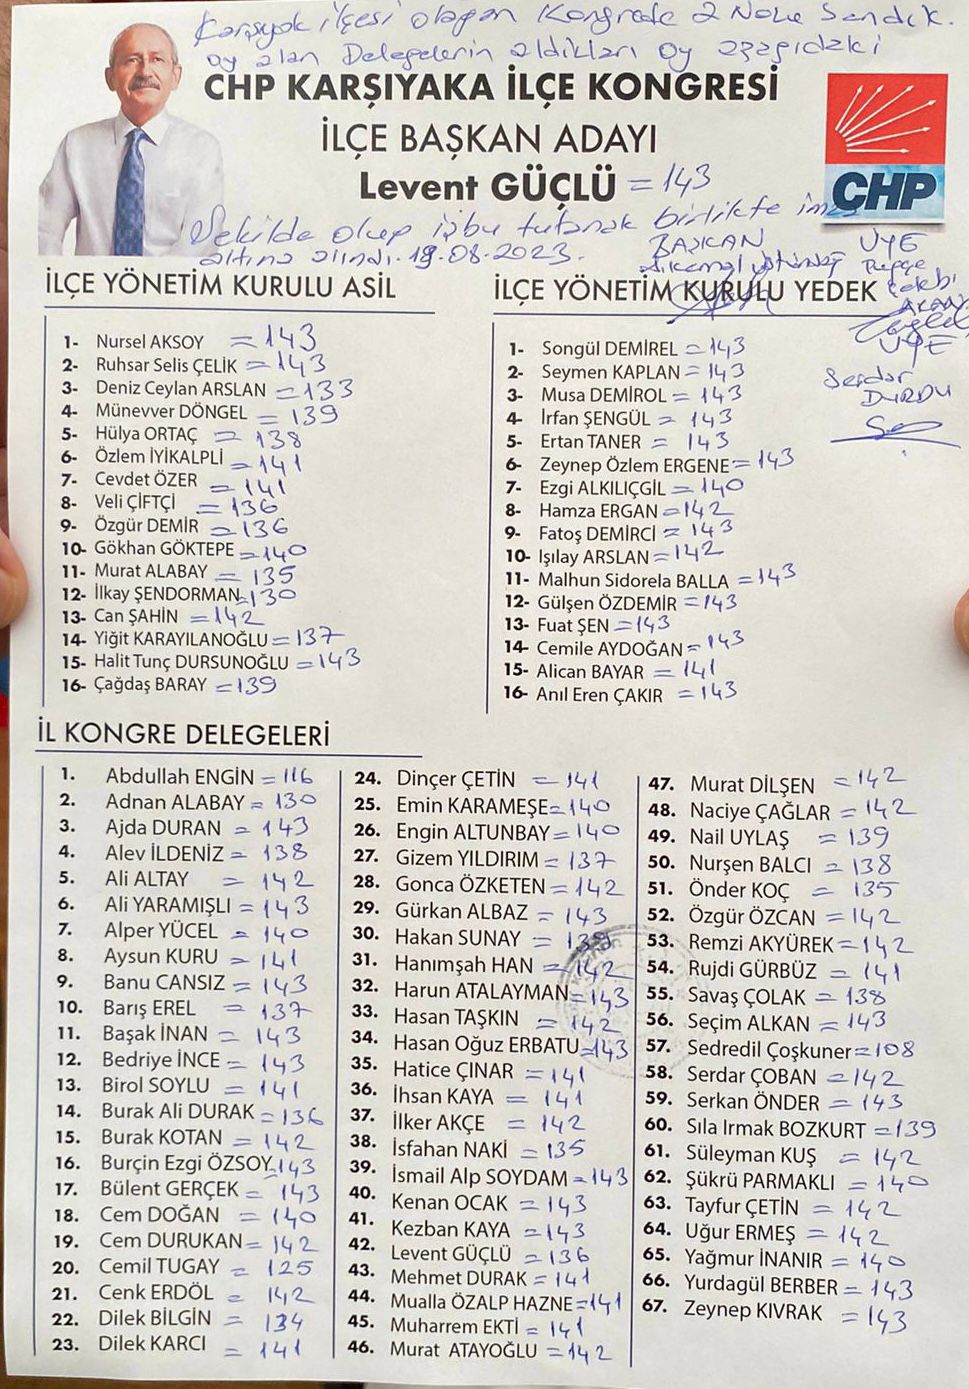 Karşıyaka ilçesi olağan Kongrede 2 Nolu Sandık.
oy alan Delegelerin aldıkları oy aşağıdaki
CHP KARŞIYAKA İLÇE KONGRESİ
İLÇE BAŞKAN ADAYI
Levent GÜÇLÜ = 143
CHP
Şekilde olup işbu tutanak birlikte imza
altına alındı. 19.08.2023.
BAŞKAN
ÜYE
ÜYE
Serdar
DURDU
İLÇE YÖNETİM KURULU ASİL
1- Nursel AKSOY = 143
2- Ruhsar Selis ÇELİK = 143
3- Deniz Ceylan ARSLAN = 133
4- Münevver DÖNGEL = 139
5- Hülya ORTAÇ = 138
6- Özlem İYİKALPLİ = 141
7- Cevdet ÖZER = 141
8- Veli ÇİFTÇİ = 136
9- Özgür DEMİR = 136
10- Gökhan GÖKTEPE = 140
11- Murat ALABAY = 135
12- İlkay ŞENDORMAN = 130
13- Can ŞAHİN = 142
14- Yiğit KARAYILANOĞLU = 137
15- Halit Tunç DURSUNOĞLU = 143
16- Çağdaş BARAY = 139
İLÇE YÖNETİM KURULU YEDEK
1- Songül DEMİREL = 143
2- Seymen KAPLAN = 143
3- Musa DEMİROL = 143
4- İrfan ŞENGÜL = 143
5- Ertan TANER = 143
6- Zeynep Özlem ERGENE = 143
7- Ezgi ALKILIÇGİL = 140
8- Hamza ERGAN = 142
9- Fatoş DEMİRCİ = 143
10- Işılay ARSLAN = 142
11- Malhun Sidorela BALLA = 143
12- Gülşen ÖZDEMİR = 143
13- Fuat ŞEN = 143
14- Cemile AYDOĞAN = 143
15- Alican BAYAR = 141
16- Anıl Eren ÇAKIR = 143
İL KONGRE DELEGELERİ
1. Abdullah ENGİN = 116
2. Adnan ALABAY = 130
3. Ajda DURAN = 143
4. Alev İLDENİZ = 138
5. Ali ALTAY = 142
6. Ali YARAMIŞLI = 143
7. Alper YÜCEL = 140
8. Aysun KURU = 141
9. Banu CANSIZ = 143
10. Barış EREL = 137
11. Başak İNAN = 143
12. Bedriye İNCE = 143
13. Birol SOYLU = 141
14. Burak Ali DURAK = 136
15. Burak KOTAN = 142
16. Burçin Ezgi ÖZSOY = 143
17. Bülent GERÇEK = 143
18. Cem DOĞAN = 140
19. Cem DURUKAN = 142
20. Cemil TUGAY = 125
21. Cenk ERDÖL = 142
22. Dilek BİLGİN = 134
23. Dilek KARCI = 141
24. Dinçer ÇETİN = 141
25. Emin KARAMEŞE = 140
26. Engin ALTUNBAY = 140
27. Gizem YILDIRIM = 137
28. Gonca ÖZKETEN = 142
29. Gürkan ALBAZ = 143
30. Hakan SUNAY = 139
31. Hanımşah HAN = 142
32. Harun ATALAYMAN = 143
33. Hasan TAŞKIN = 142
34. Hasan Oğuz ERBATU = 143
35. Hatice ÇINAR = 141
36. İhsan KAYA = 141
37. İlker AKÇE = 142
38. İsfahan NAKİ = 135
39. İsmail Alp SOYDAM = 143
40. Kenan OCAK = 143
41. Kezban KAYA = 143
42. Levent GÜÇLÜ = 136
43. Mehmet DURAK = 141
44. Mualla ÖZALP HAZNE = 141
45. Muharrem EKTİ = 141
46. Murat ATAYOĞLU = 142
47. Murat DİLŞEN = 142
48. Naciye ÇAĞLAR = 142
49. Nail UYLAŞ = 139
50. Nurşen BALCI = 138
51. Önder KOÇ = 135
52. Özgür ÖZCAN = 142
53. Remzi AKYÜREK = 142
54. Rujdi GÜRBÜZ = 141
55. Savaş ÇOLAK = 138
56. Seçim ALKAN = 143
57. Sedredil Çoşkuner = 108
58. Serdar ÇOBAN = 142
59. Serkan ÖNDER = 143
60. Sıla Irmak BOZKURT = 139
61. Süleyman KUŞ = 142
62. Şükrü PARMAKLI = 140
63. Tayfur ÇETİN = 142
64. Uğur ERMEŞ = 142
65. Yağmur İNANIR = 140
66. Yurdagül BERBER = 143
67. Zeynep KIVRAK = 143